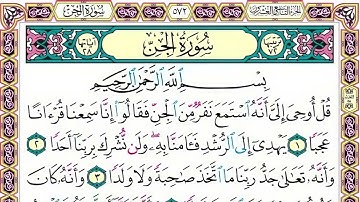 سُورَةُ الجِنِّ ٥٧٢ الجزء التاسع والعشرون
سُورَةُ الجِنِّ
بِسْمِ اللَّهِ الرَّحْمَٰنِ الرَّحِيمِ
قُلْ أُوحِيَ إِلَيَّ أَنَّهُ ٱسْتَمَعَ نَفَرٌ مِّنَ ٱلْجِنِّ فَقَالُوٓا۟ إِنَّا سَمِعْنَا قُرْءَانًا
عَجَبًا ١ يَهْدِىٓ إِلَى ٱلرُّشْدِ فَـَٔامَنَّا بِهِۦ ۖ وَلَن نُّشْرِكَ بِرَبِّنَآ أَحَدًا ٢
وَأَنَّهُۥ تَعَٰلَىٰ جَدُّ رَبِّنَا مَا ٱتَّخَذَ صَٰحِبَةً وَلَا وَلَدًا ٣ وَأَنَّهُۥ كَانَ